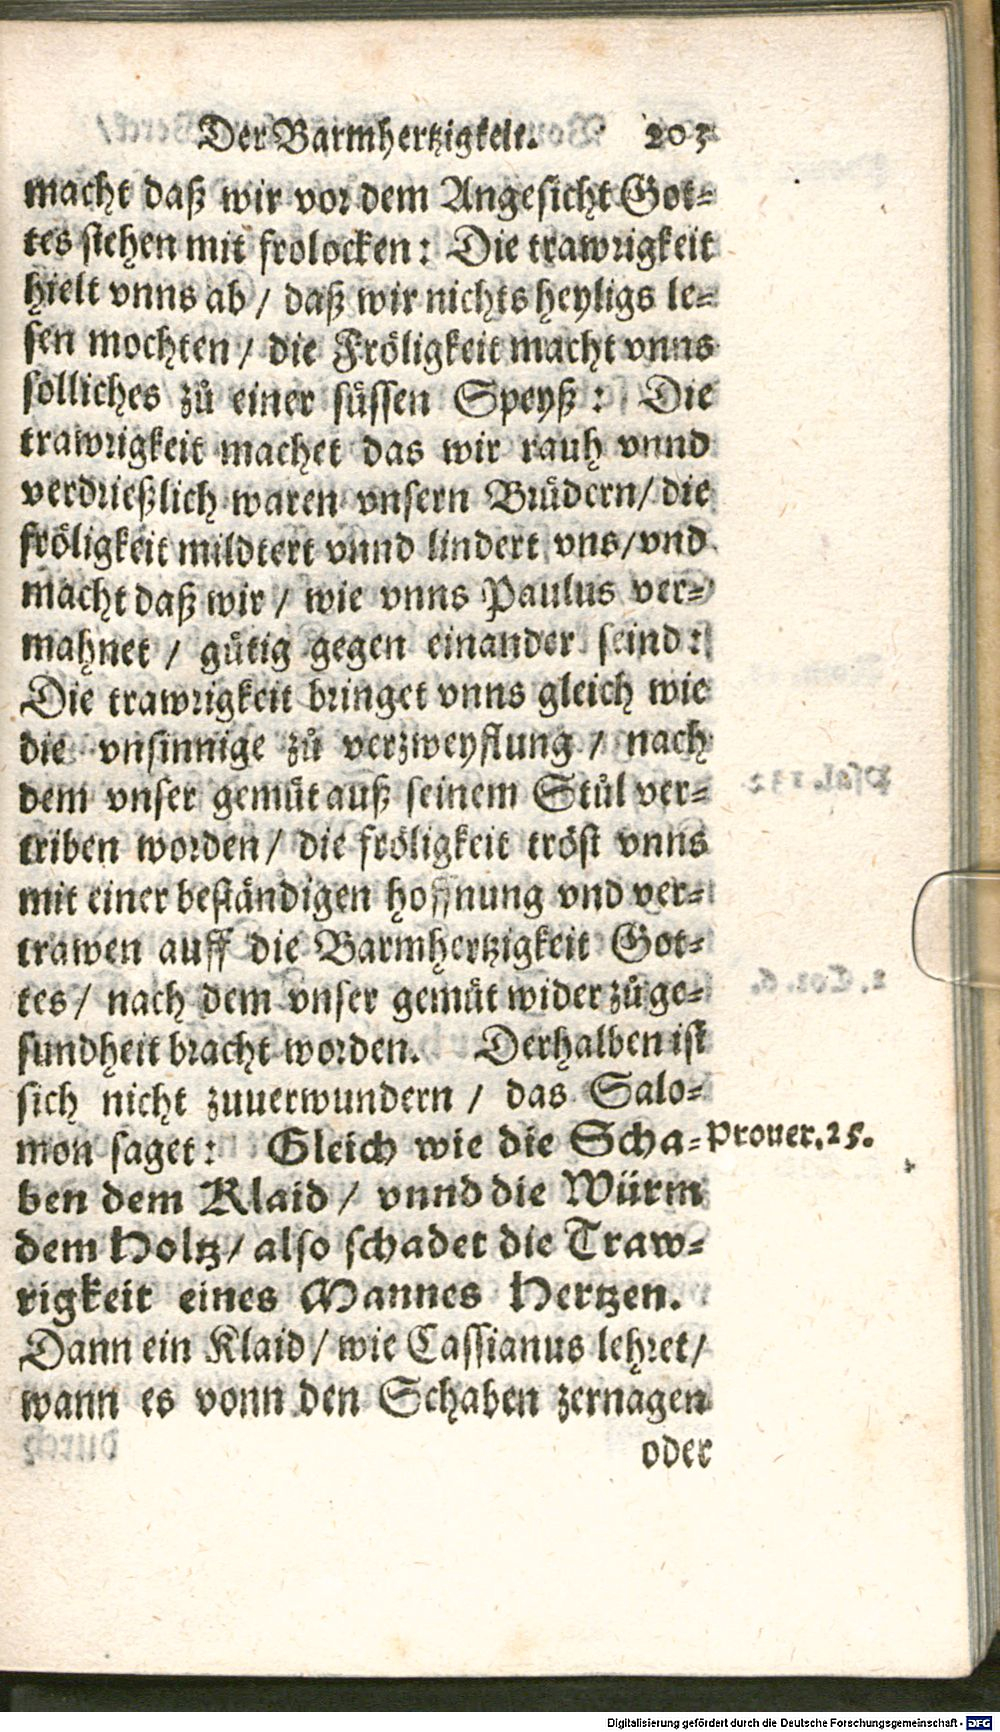 Der Barmhertzigkeit. 203
macht daß wir vor dem Angesicht Got-
tes stehen mit frolocken: Die trawrigkeit
hielt vnns ab / daß wir nichts heyligs le-
sen mochten / die Fröligkeit macht vnns
solliches zů einer süssen Speyß: Die
trawrigkeit machet das wir rauh vnnd
verdrießlich waren vnsern Brüdern / die
fröligkeit mildtert vnnd lindert vns / vnd
macht daß wir / wie vnns Paulus ver-
mahnet / gütig gegen einander seind:
Die trawrigkeit bringet vnns gleich wie
die vnsinnige zů verzweyflung / nach
dem vnser gemüt auß seinem Stůl ver-
triben worden / die fröligkeit tröst vnns
mit einer beständigen hoffnung vnd ver-
trawen auff die Barmhertzigkeit Got-
tes / nach dem vnser gemüt wider zů ge-
sundheit bracht worden. Derhalben ist
sich nicht zuuerwundern / das Salo-
mon saget: Gleich wie die Scha- Prouer. 25.
ben dem Klaid / vnnd die Würm
dem Holtz / also schadet die Traw-
rigkeit eines Mannes Hertzen.
Dann ein Klaid / wie Cassianus lehret /
wann es vonn den Schaben zernagen
oder
Digitalisierung gefördert durch die Deutsche Forschungsgemeinschaft - DFG